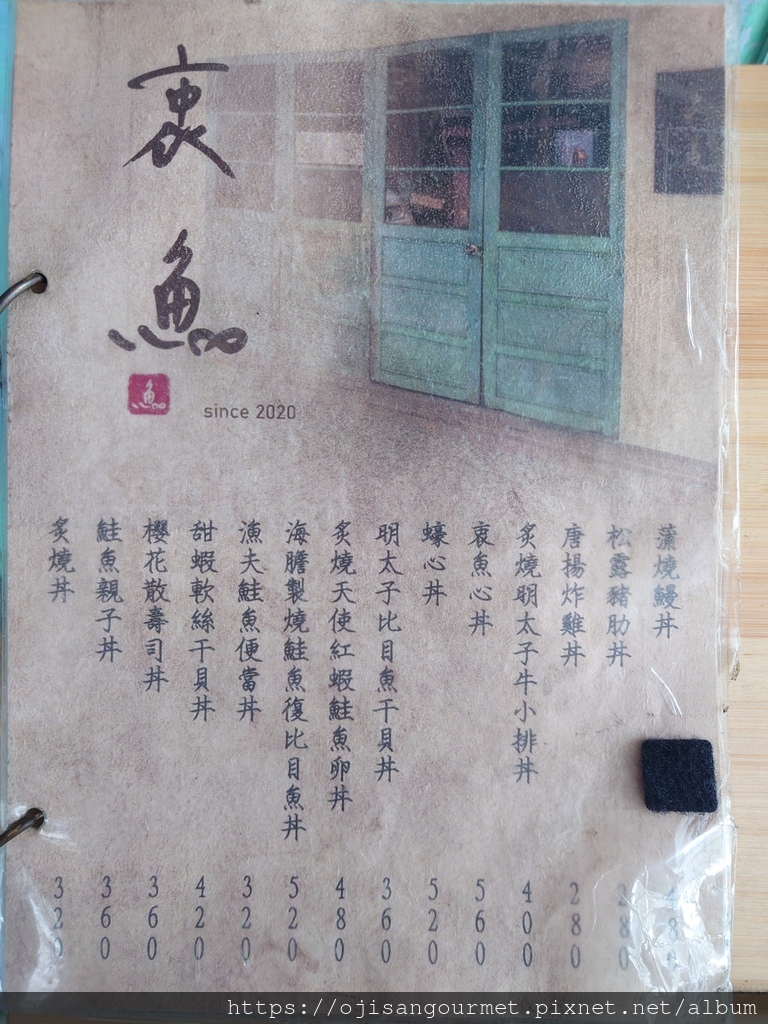 衷魚
since 2020
蒲燒鰻丼
松露豬肋丼 280
唐揚炸雞丼 280
炙燒明太子牛小排丼 400
衷魚心丼 560
蠔心丼 520
明太子比目魚干貝丼 360
炙燒天使紅蝦鮭魚卵丼 480
海膽製燒鮭魚復比目魚丼 520
漁夫鮭魚便當丼 320
甜蝦軟絲干貝丼 420
櫻花散壽司丼 360
鮭魚親子丼 360
炙燒丼 320
https://ojisangourmet.pixnet.net/album